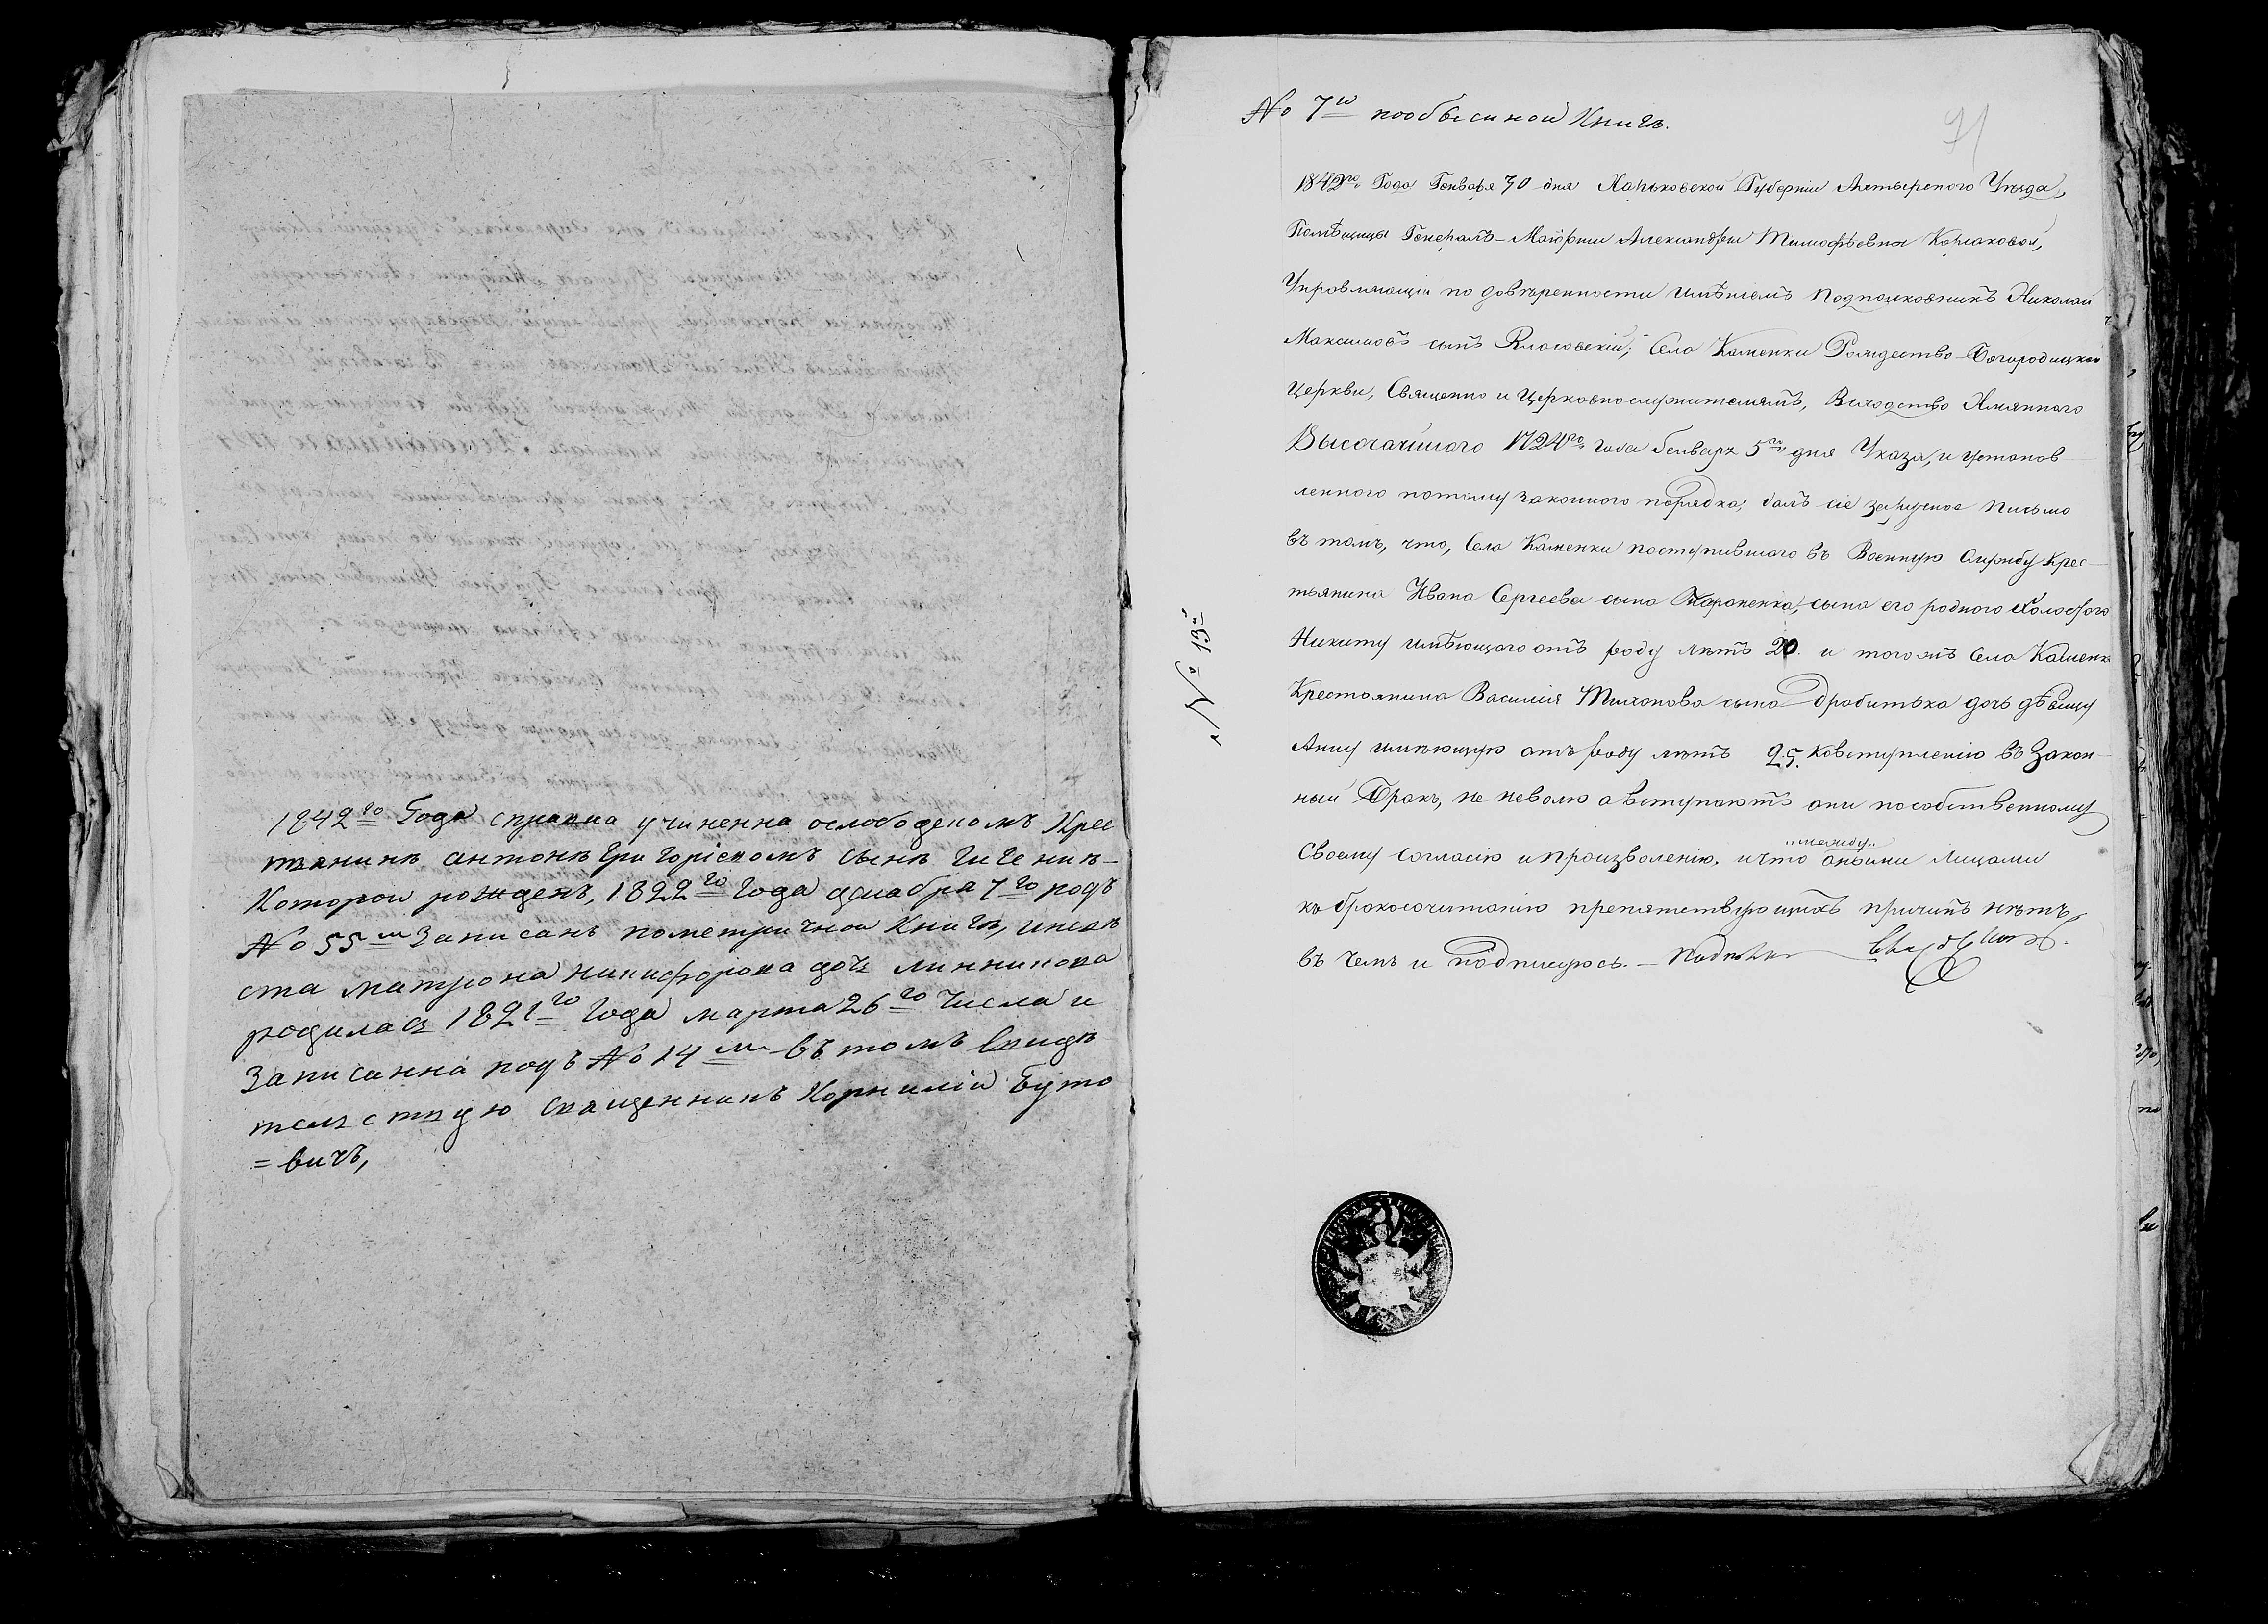 1842го Года справка учиненна ослободскомъ Крес
тянинѣ антонѣ Григоріевомъ сынѣ
Которои рожденъ, 1822го Года декабря 7го подъ
№ 55м Записанъ пометричнои Книгѣ, иневѣ
ста матрона никифорова дочъ линникова
родилась 1821го Года марта 26го Числа и
Записанна подъ № 14м въ томъ свидѣ
телствую священникъ Корнилій Буто
=вичъ,
№ 7й пообысной Книгѣ.
91
1842го Года Генваря 30 дня Харьковской Губерніи Ахтырского Уѣзда,
Помѣщицы Генералъ-Маіорши Александры Тимофѣевны Корсаковой,
Управляющій по довѣренности имѣніемъ Подполковникъ Николай
Максимовъ сынъ Села Каменки Рождество-Богородицкой
Церкви, Священно и Церковнослужителямъ, Имяннаго
Высочайшаго 1724го года Генваря 5го дня Указа, и установ
леннаго потому законнаго порядка; далъ сіе заручное письмо
въ томъ, что, Села Каменки поступившаго въ Военную Службу Крес-
тьянина Ивана Сергеева сына сына его родного Холостого
Никиту имѣющаго отъ роду лѣтъ 20. и того жъ Села Каменки
Крестьянина Василія Тихонова сына Дробитька дочь дѣвицу
Анну имѣющую отъ роду лѣтъ 25. ковступленію въ Закон-
ный Бракъ, не неволю а вступаютъ они пособственному
Своему согласію и произволенію. и что „между„ оными Лицами
къ бракосочитанію препятствующихъ причинъ нѣтъ,
въ чемъ и подпишусь. —
№ 13й